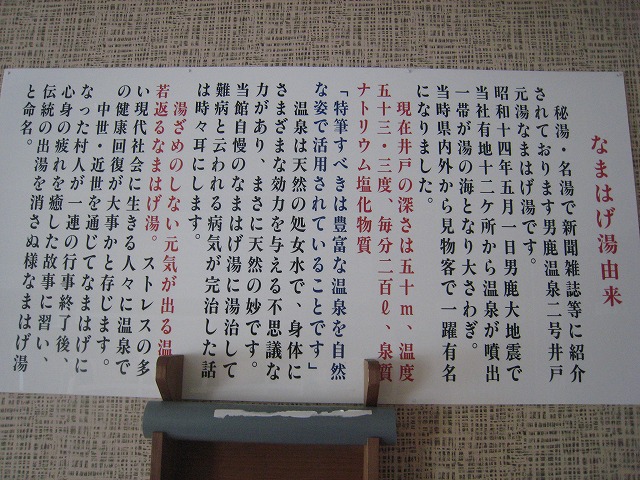 なまはげ湯由来
秘湯・名湯で新聞雑誌等に紹介
されております男鹿温泉二号井戸
元湯なまはげ湯です。
昭和十四年五月一日男鹿大地震で
当社有地十二ケ所から温泉が噴出
一帯が湯の海となり大さわぎ。
当時県内外から見物客で一躍有名
になりました。
現在井戸の深さは五十m、温度
五十三・三度、毎分二百ℓ、泉質
ナトリウム塩化物質
「特筆すべきは豊富な温泉を自然
な姿で活用されていることです」
温泉は天然の処女水で、身体に
さまざまな効力を与える不思議な
力があり、まさに天然の妙です。
当館自慢のなまはげ湯に湯治して
難病と云われる病気が完治した話
は時々耳にします。
湯ざめのしない元気が出る温
若返るなまはげ湯。ストレスの多
い現代社会に生きる人々に温泉で
の健康回復が大事かと存じます。
中世・近世を通じてなまはげに
なった村人が一連の行事終了後、
心身の疲れを癒した故事に習い、
伝統の出湯を消さぬ様なまはげ湯
と命名。